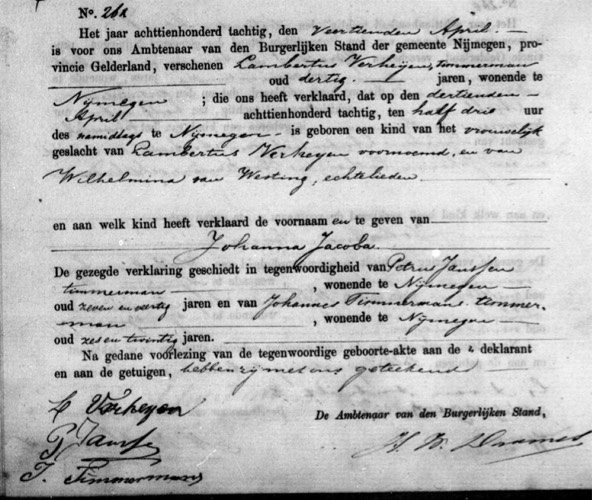 No. 261
Het jaar achttienhonderd tachtig, den Veertienden April. —
is voor ons Ambtenaar van den Burgerlijken Stand der gemeente Nijmegen, pro-
vincie Gelderland, verschenen Lambertus Verheyen, timmerman
oud dertig. — jaren, wonende te
Nijmegen ; die ons heeft verklaard, dat op den dertienden —
April achttienhonderd tachtig, ten half drie uur
des namiddags te Nijmegen — is geboren een kind van het vrouwelijk
geslacht van Lambertus Verheyen voornoemd, en van
Wilhelmina van Westing, echtelieden.
en aan welk kind heeft verklaard de voornaam en te geven van
Johanna Jacoba.
De gezegde verklaring geschiedt in tegenwoordigheid van Petrus Janssen
timmerman , wonende te Nijmegen —
oud zeven en veertig jaren en van Johannes Timmermans, timmer-
man , wonende te Nijmegen —
oud zes en twintig jaren.
Na gedane voorlezing van de tegenwoordige geboorte-akte aan de deklarant
en aan de getuigen, hebben zij met ons geteekend
L Verheyen
De Ambtenaar van den Burgerlijken Stand,
P. Janssen
J. Timmermans